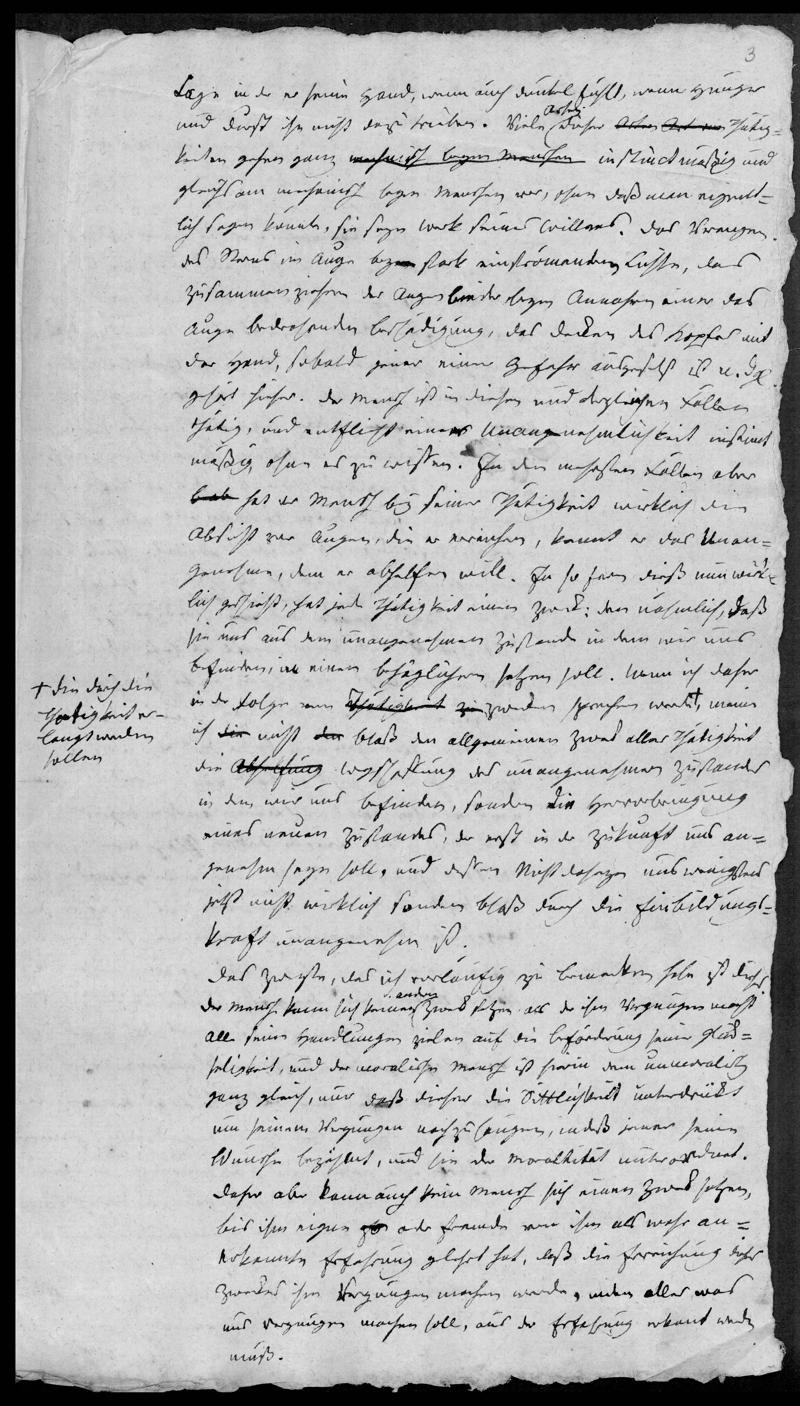 3
Lage in der er seine Hand, wenn auch dunkel fühlt, wenn Hunger
und Durst ihn nicht dazu trieben. Viele Arten dieser Thätig=
keiten gehen ganz mechanisch beym Menschen instinctmäßig und
gleichsam mechanisch beym Menschen vor, ohne daß man eigent=
lich sagen könnte, sie seyn Werk seines Willens. Das Verengen
des Sterns im Auge bey stark einströmendem Lichte, das
Zusammenziehen der Augenlieder beym Annahen einer das
Auge bedrohenden Beschädigung, das Decken des Kopfes mit
der Hand, sobald jener einer Gefahr ausgesetzt ist u. dgl.
gehört hieher. Der Mensch ist in diesen und dergleichen Fällen
thätig, und entflieht einer Unannehmlichkeit instinct
mäßig, ohne es zu wissen. In den mehesten Fällen aber
hat der Mensch bey seiner Thätigkeit wirklich die
Absicht vor Augen, die er erreichen, kennt er das Unan=
genehme, dem er abhelfen will. In so fern dieß nun wirk=
lich geschieht, hat jede Thätigkeit einen Zweck: den nähmlich, daß
sie uns aus dem unangenehmen Zustande in dem wir uns
befinden, in einen behäglichern setzen soll. Wenn ich daher
in der Folge von Thätigkeit zu Zwecken sprechen werde †, meine
† die durch die
Thätigkeit er=
langt werden
sollen
ich die nicht den bloß den allgemeinen Zweck aller Thätigkeit
die Abhelfung Wegschaffung des unangenehmen Zustandes
in dem wir uns befinden, sondern die Hervorbringung
eines neuen Zustandes, der erst in der Zukunft uns an=
genehm seyn soll, und dessen Nichtdaseyn uns wenigstens
jetzt nicht wirklich sondern bloß durch die Einbildungs=
kraft unangenehm ist.
Das Zweyte, das ich vorläufig zu bemerken habe ist dieß
der Mensch kann sich keinen andern Zweck setzen als der ihm Vergnügen macht
alle seine Handlungen zielen auf die Beförderung seiner Glück=
seligkeit, und der moralische Mensch ist hierin dem unmoralisch
ganz gleich, nur daß dieser die Sittlichkeit unterdrückt
um seinem Vergnügen nachzuhängen, indeß jener seine
Wünsche bezähmt, und sie der Moralität unterordnet.
Daher aber kann auch kein Mensch sich einen Zweck setzen,
bis ihm eigne oder fremde von ihm als wahr an=
erkannte Erfahrung gelehrt hat, daß die Erreichung dieses
Zweckes ihm Vergnügen machen werde, indem alles was
uns Vergnügen machen soll, aus der Erfahrung erkannt werden
muß.